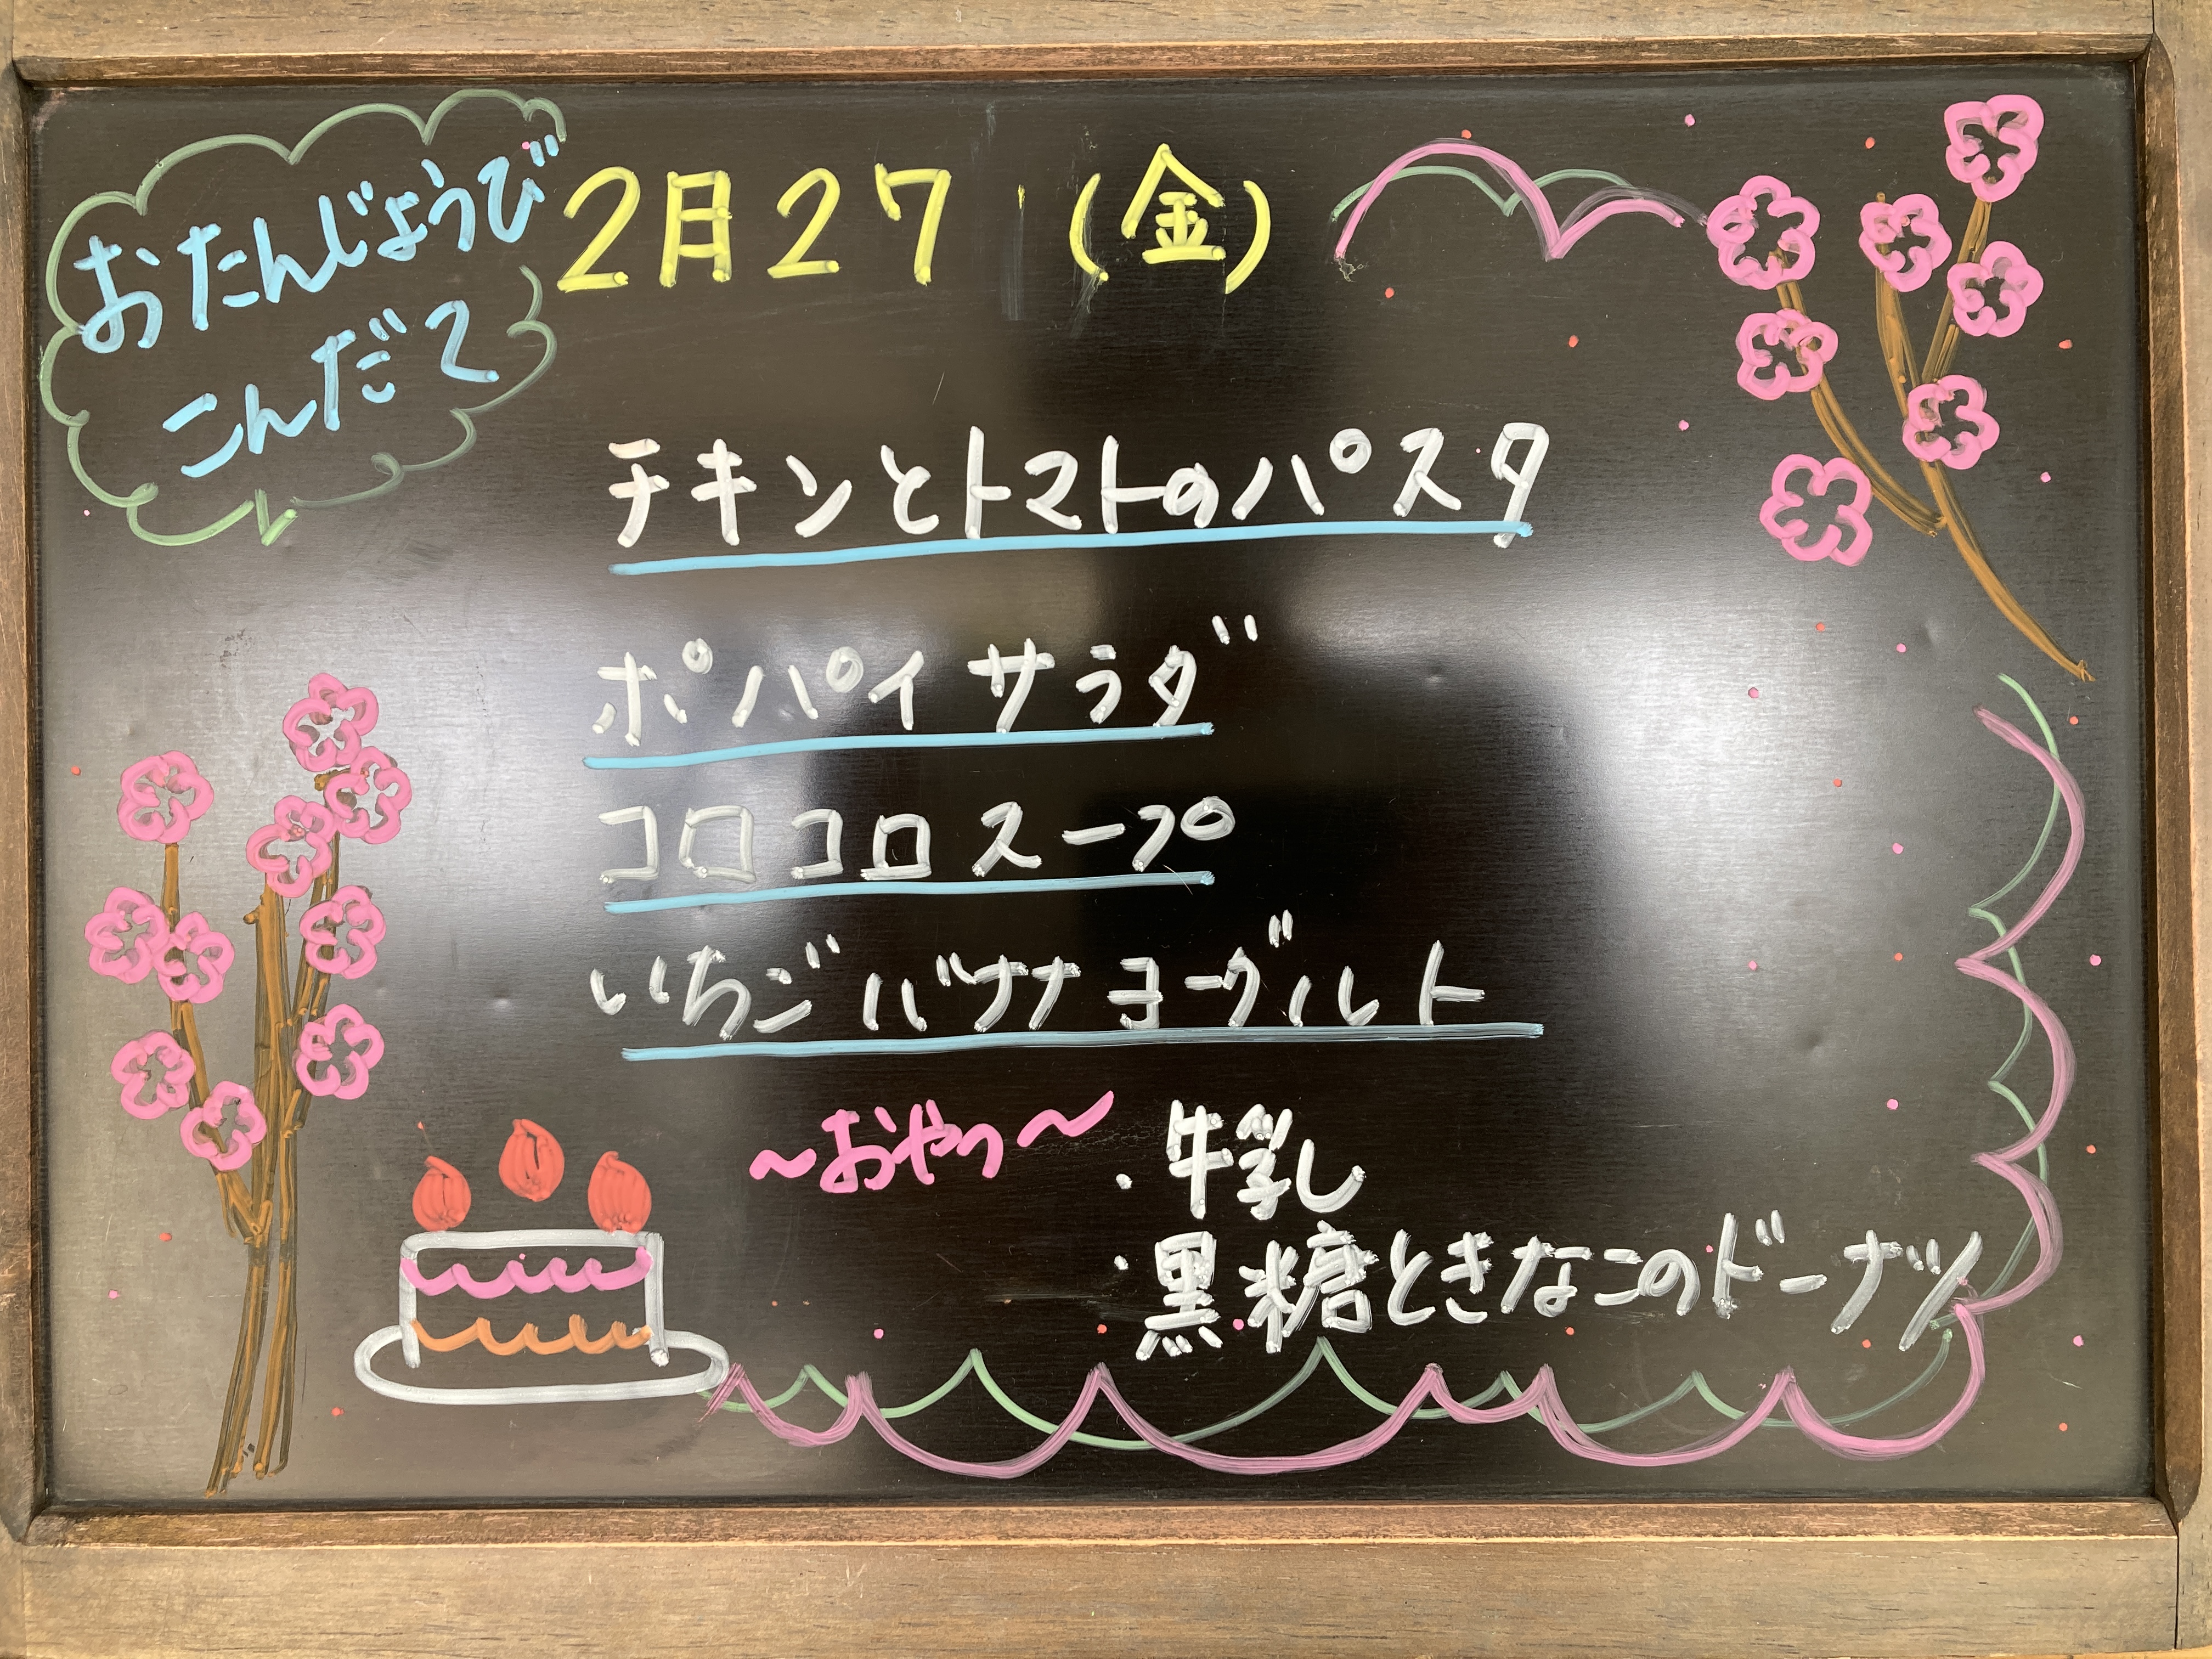 おたんじょうび
こんだて
2月27(金)
チキンとトマトのパスタ
ポパイサラダ
コロコロスープ
いちごバナナヨーグルト
～おやつ～
・牛乳
・黒糖ときなこのドーナツ